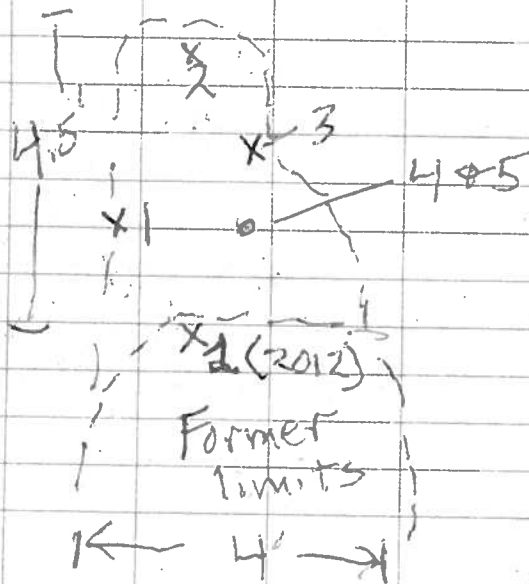 x
2
x 3
4.5
4 & 5
x 1
x 1 (2012)
Former
limits
4'